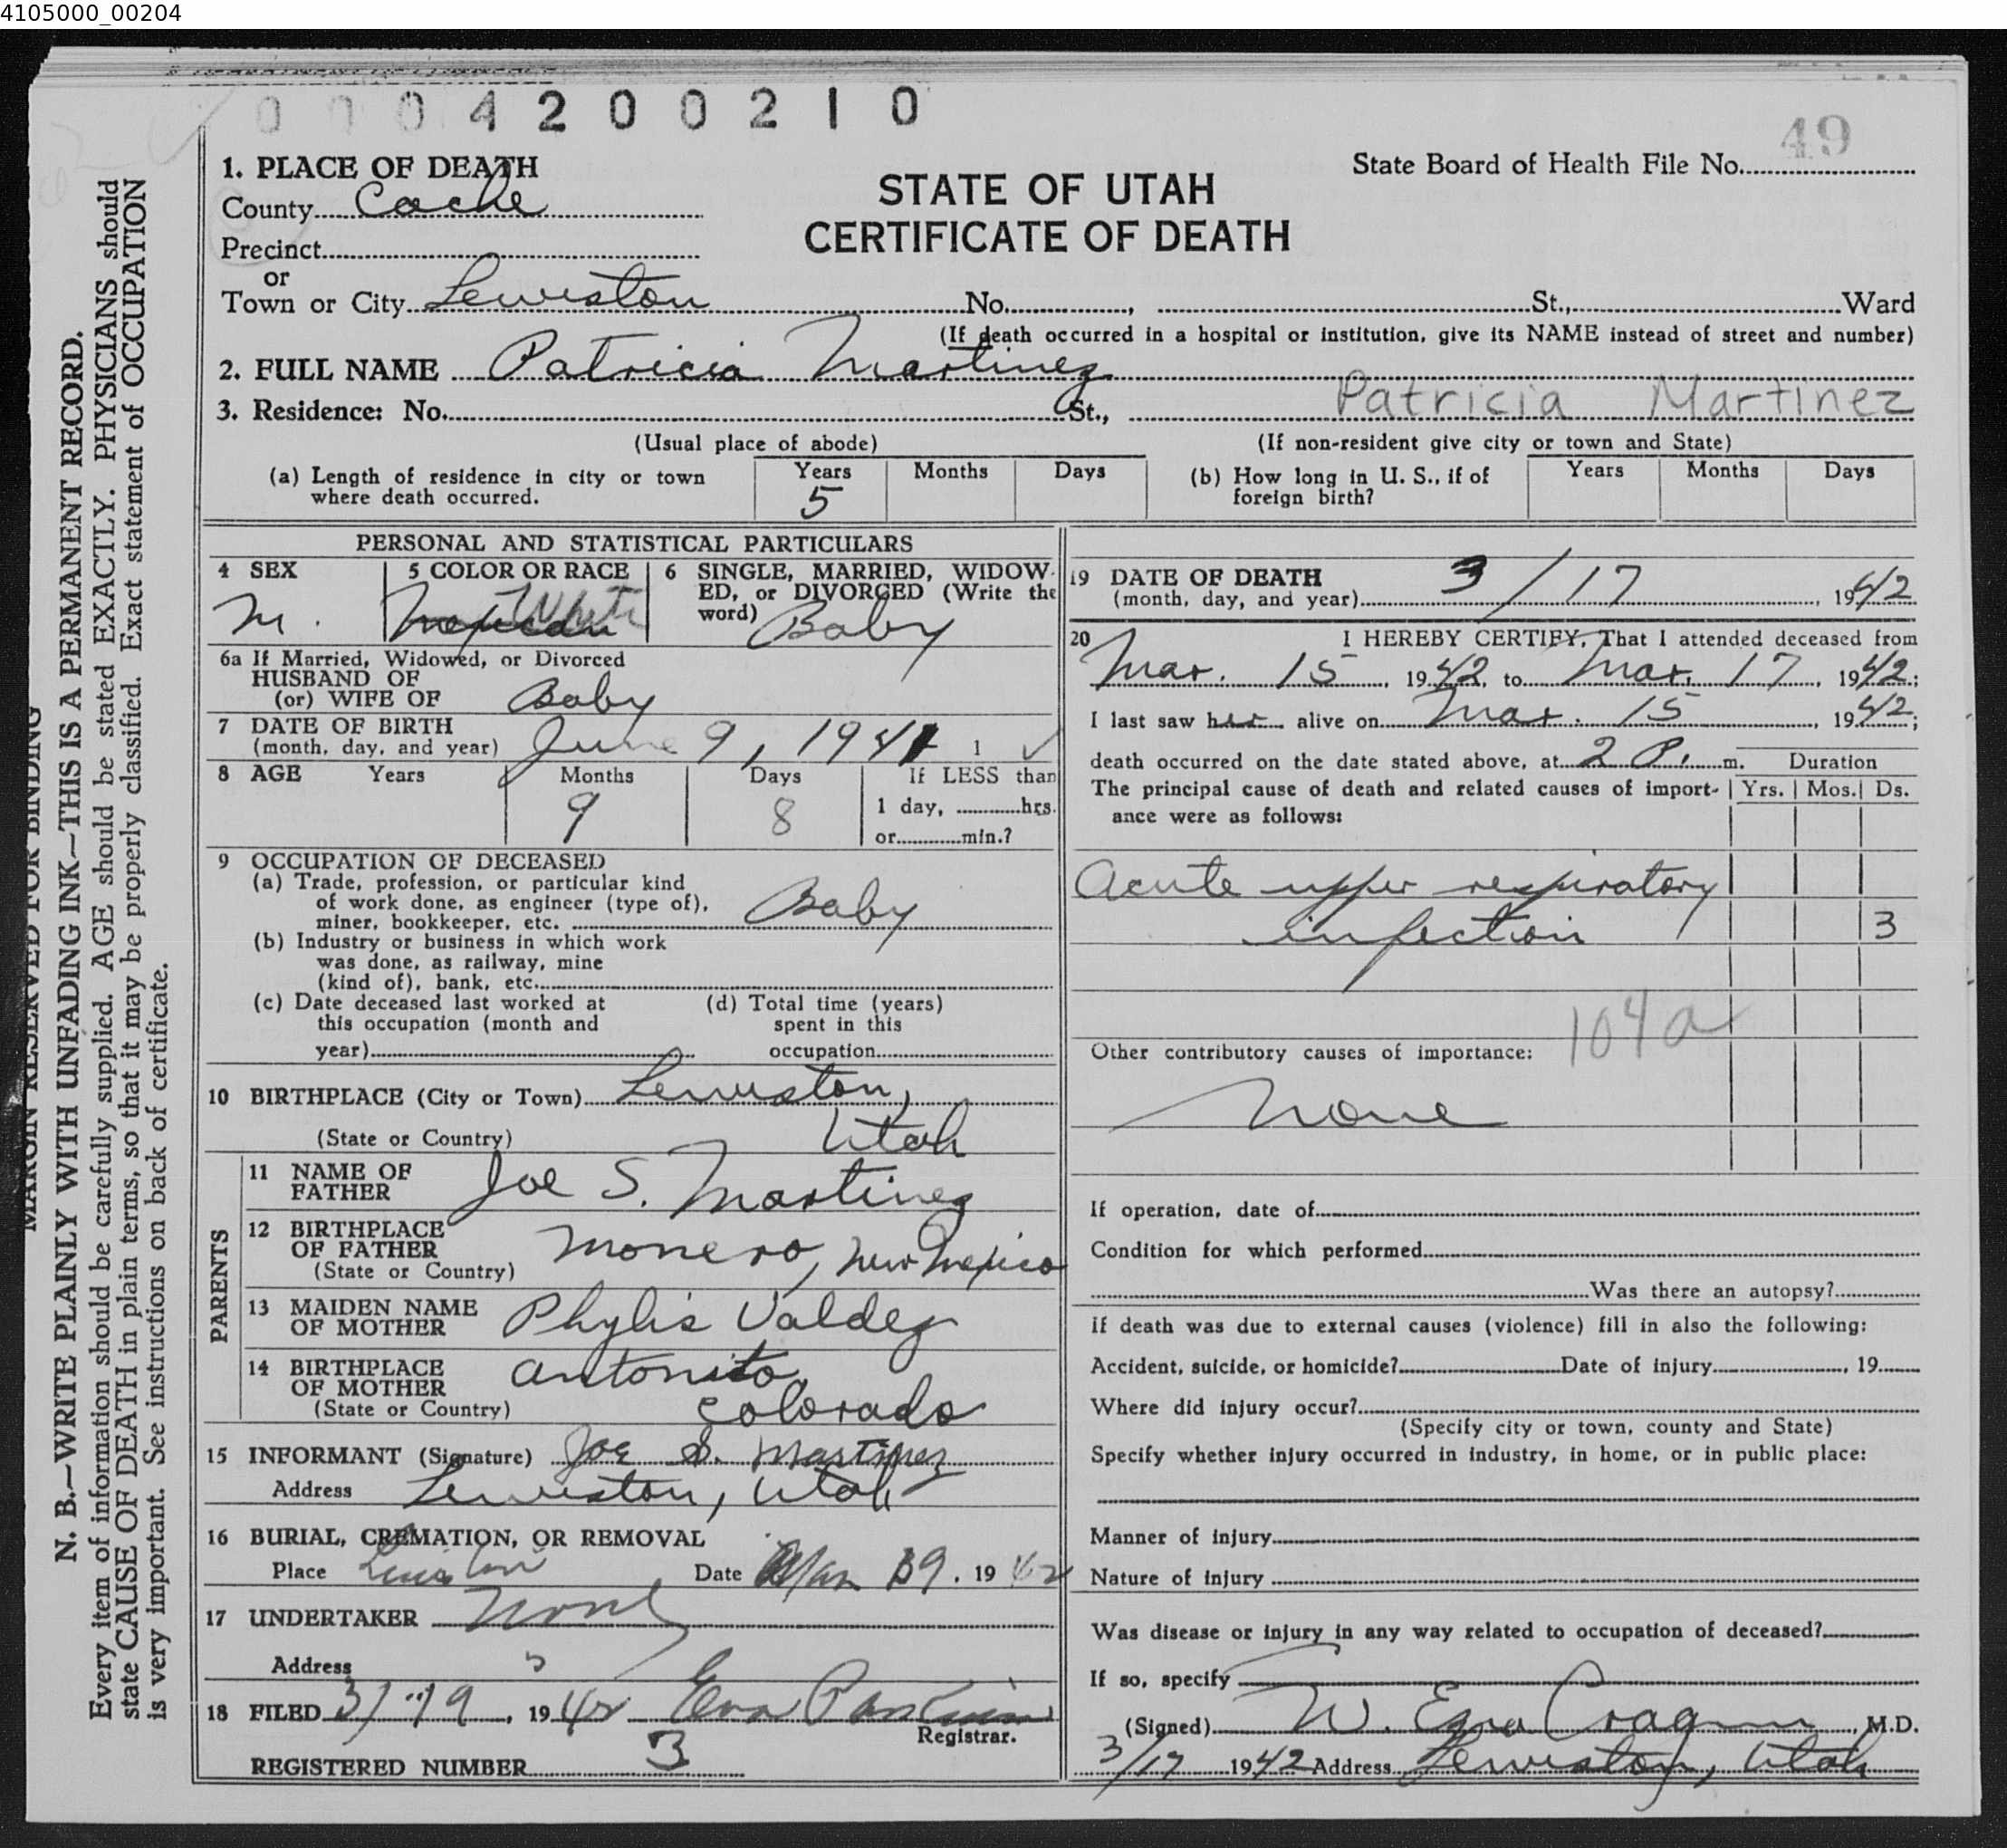 4105000_00204
0004200210
49
1. PLACE OF DEATH
State Board of Health File No.
County Cache
STATE OF UTAH
CERTIFICATE OF DEATH
Precinct
or
Town or City Lewiston No. , St., Ward
(If death occurred in a hospital or institution, give its NAME instead of street and number)
2. FULL NAME Patricia Martinez
3. Residence: No. St., Patricia Martinez
(Usual place of abode) (If non-resident give city or town and State)
(a) Length of residence in city or town where death occurred. Years 5 Months Days
(b) How long in U. S., if of foreign birth? Years Months Days
PERSONAL AND STATISTICAL PARTICULARS
4 SEX M.
5 COLOR OR RACE Mexican White
6 SINGLE, MARRIED, WIDOWED, or DIVORCED (Write the word) Baby
6a If Married, Widowed, or Divorced
HUSBAND OF
(or) WIFE OF Baby
7 DATE OF BIRTH
(month, day, and year) June 9, 1941 1 ✓
8 AGE Years Months Days If LESS than
9 8 1 day, hrs.
or min.?
9 OCCUPATION OF DECEASED
(a) Trade, profession, or particular kind
of work done, as engineer (type of),
miner, bookkeeper, etc. Baby
(b) Industry or business in which work
was done, as railway, mine
(kind of), bank, etc.
(c) Date deceased last worked at
this occupation (month and
year)
(d) Total time (years)
spent in this
occupation
10 BIRTHPLACE (City or Town) Lewiston,
(State or Country) Utah
PARENTS
11 NAME OF
FATHER Joe S. Martinez
12 BIRTHPLACE
OF FATHER Monero, New Mexico
(State or Country)
13 MAIDEN NAME
OF MOTHER Phylis Valdez
14 BIRTHPLACE
OF MOTHER Antonito,
(State or Country) Colorado
15 INFORMANT (Signature) Joe S. Martinez
Address Lewiston, Utah
16 BURIAL, CREMATION, OR REMOVAL
Place Lewiston Date Mar 19. 1942
17 UNDERTAKER None
Address
18 FILED 3/19, 1942 Eva
Registrar.
REGISTERED NUMBER 3
19 DATE OF DEATH
(month, day, and year) 3/17, 1942
20 I HEREBY CERTIFY, That I attended deceased from
Mar. 15, 1942, to Mar. 17, 1942;
I last saw her alive on Mar. 15, 1942;
death occurred on the date stated above, at 2 P. m. Duration
The principal cause of death and related causes of import- Yrs. Mos. Ds.
ance were as follows:
Acute upper respiratory
infection 3
104a
Other contributory causes of importance:
None
If operation, date of
Condition for which performed
Was there an autopsy?
If death was due to external causes (violence) fill in also the following:
Accident, suicide, or homicide? Date of injury , 19
Where did injury occur?
(Specify city or town, county and State)
Specify whether injury occurred in industry, in home, or in public place:
Manner of injury
Nature of injury
Was disease or injury in any way related to occupation of deceased?
If so, specify
(Signed) W. Ezra Cragun, M.D.
3/17 1942 Address Lewiston, Utah
MARGIN RESERVED FOR BINDING
N. B.—WRITE PLAINLY WITH UNFADING INK—THIS IS A PERMANENT RECORD.
Every item of information should be carefully supplied. AGE should be stated EXACTLY. PHYSICIANS should
state CAUSE OF DEATH in plain terms, so that it may be properly classified. Exact statement of OCCUPATION
is very important. See instructions on back of certificate.